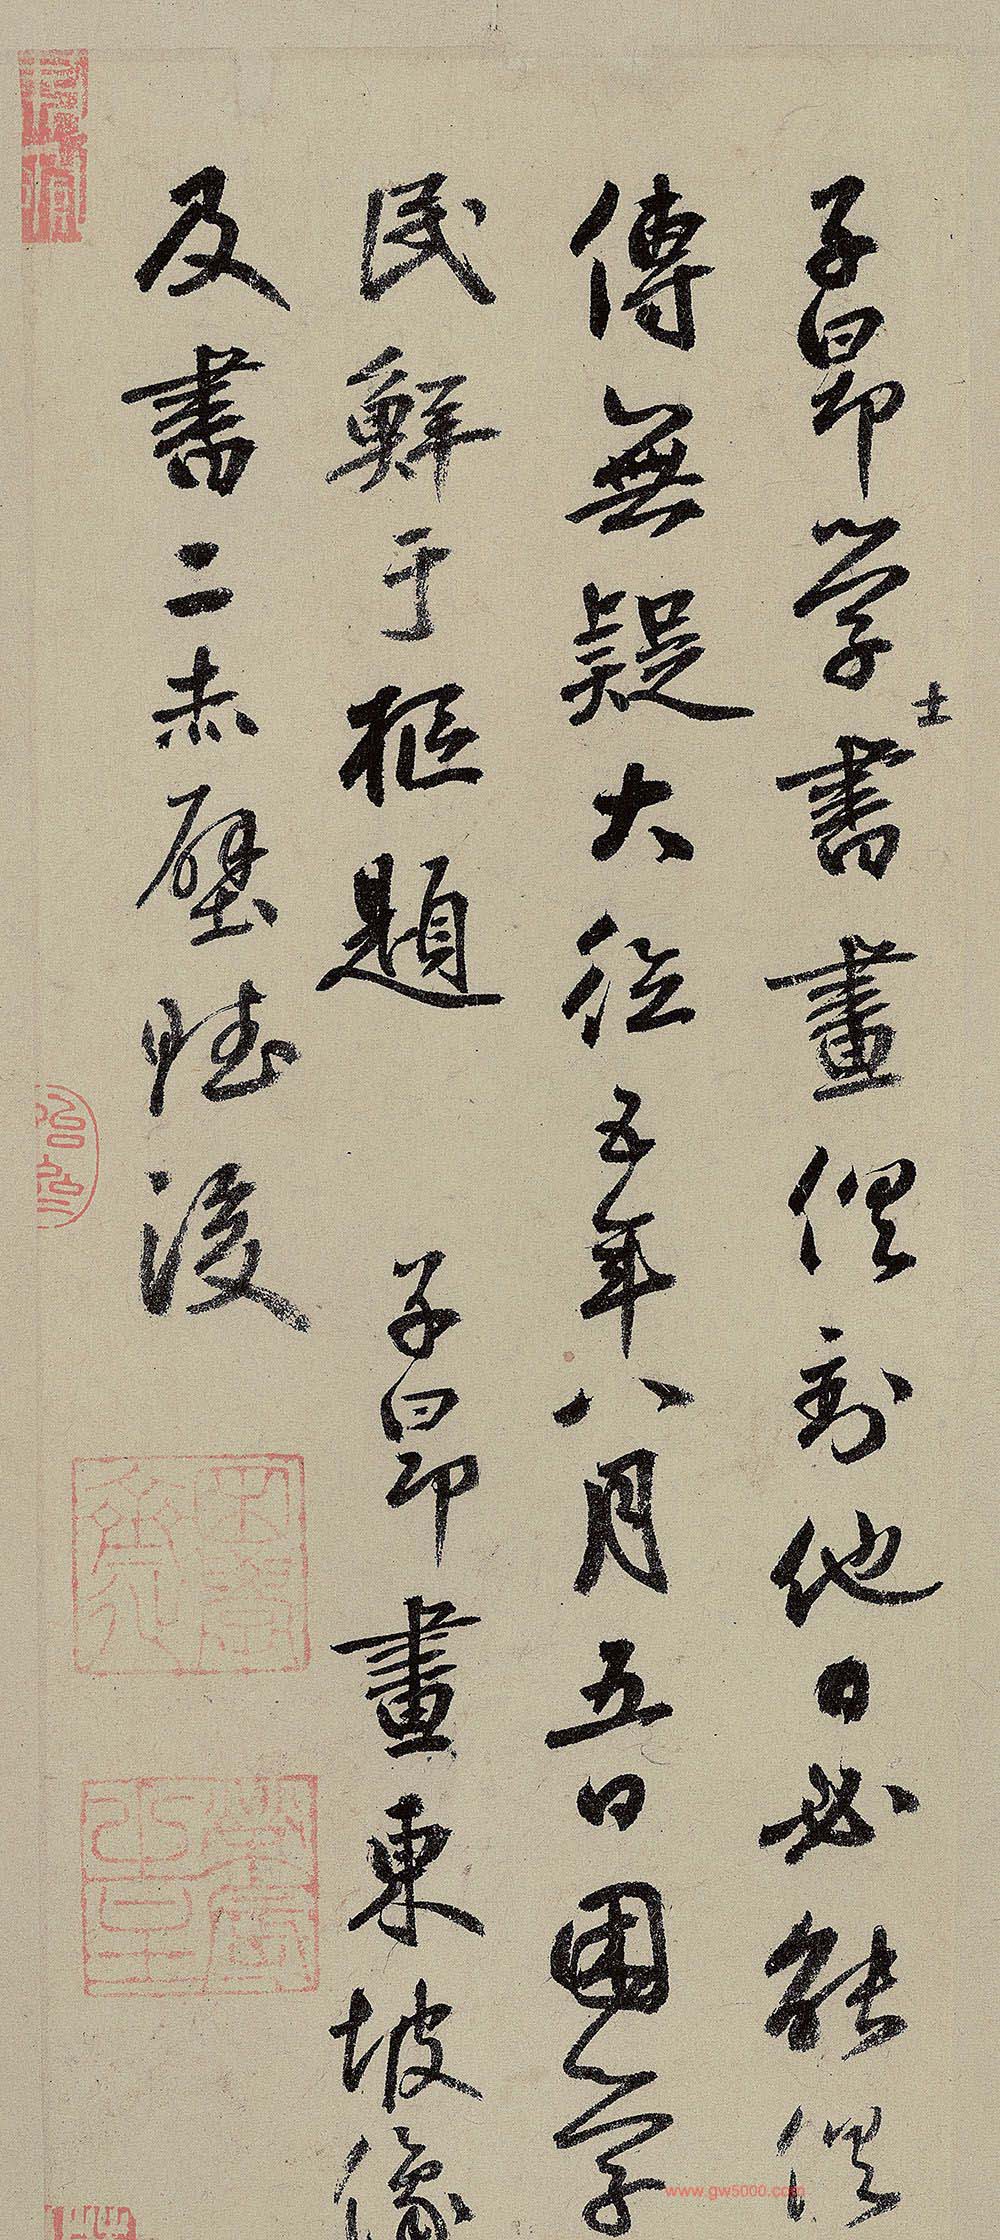 子昂学士書畫俱到他日必能俱
傳無疑大德五年八月五日困学
民鮮于樞題 子昂畫東坡像
及書二赤壁賦後
www.gw5000.com